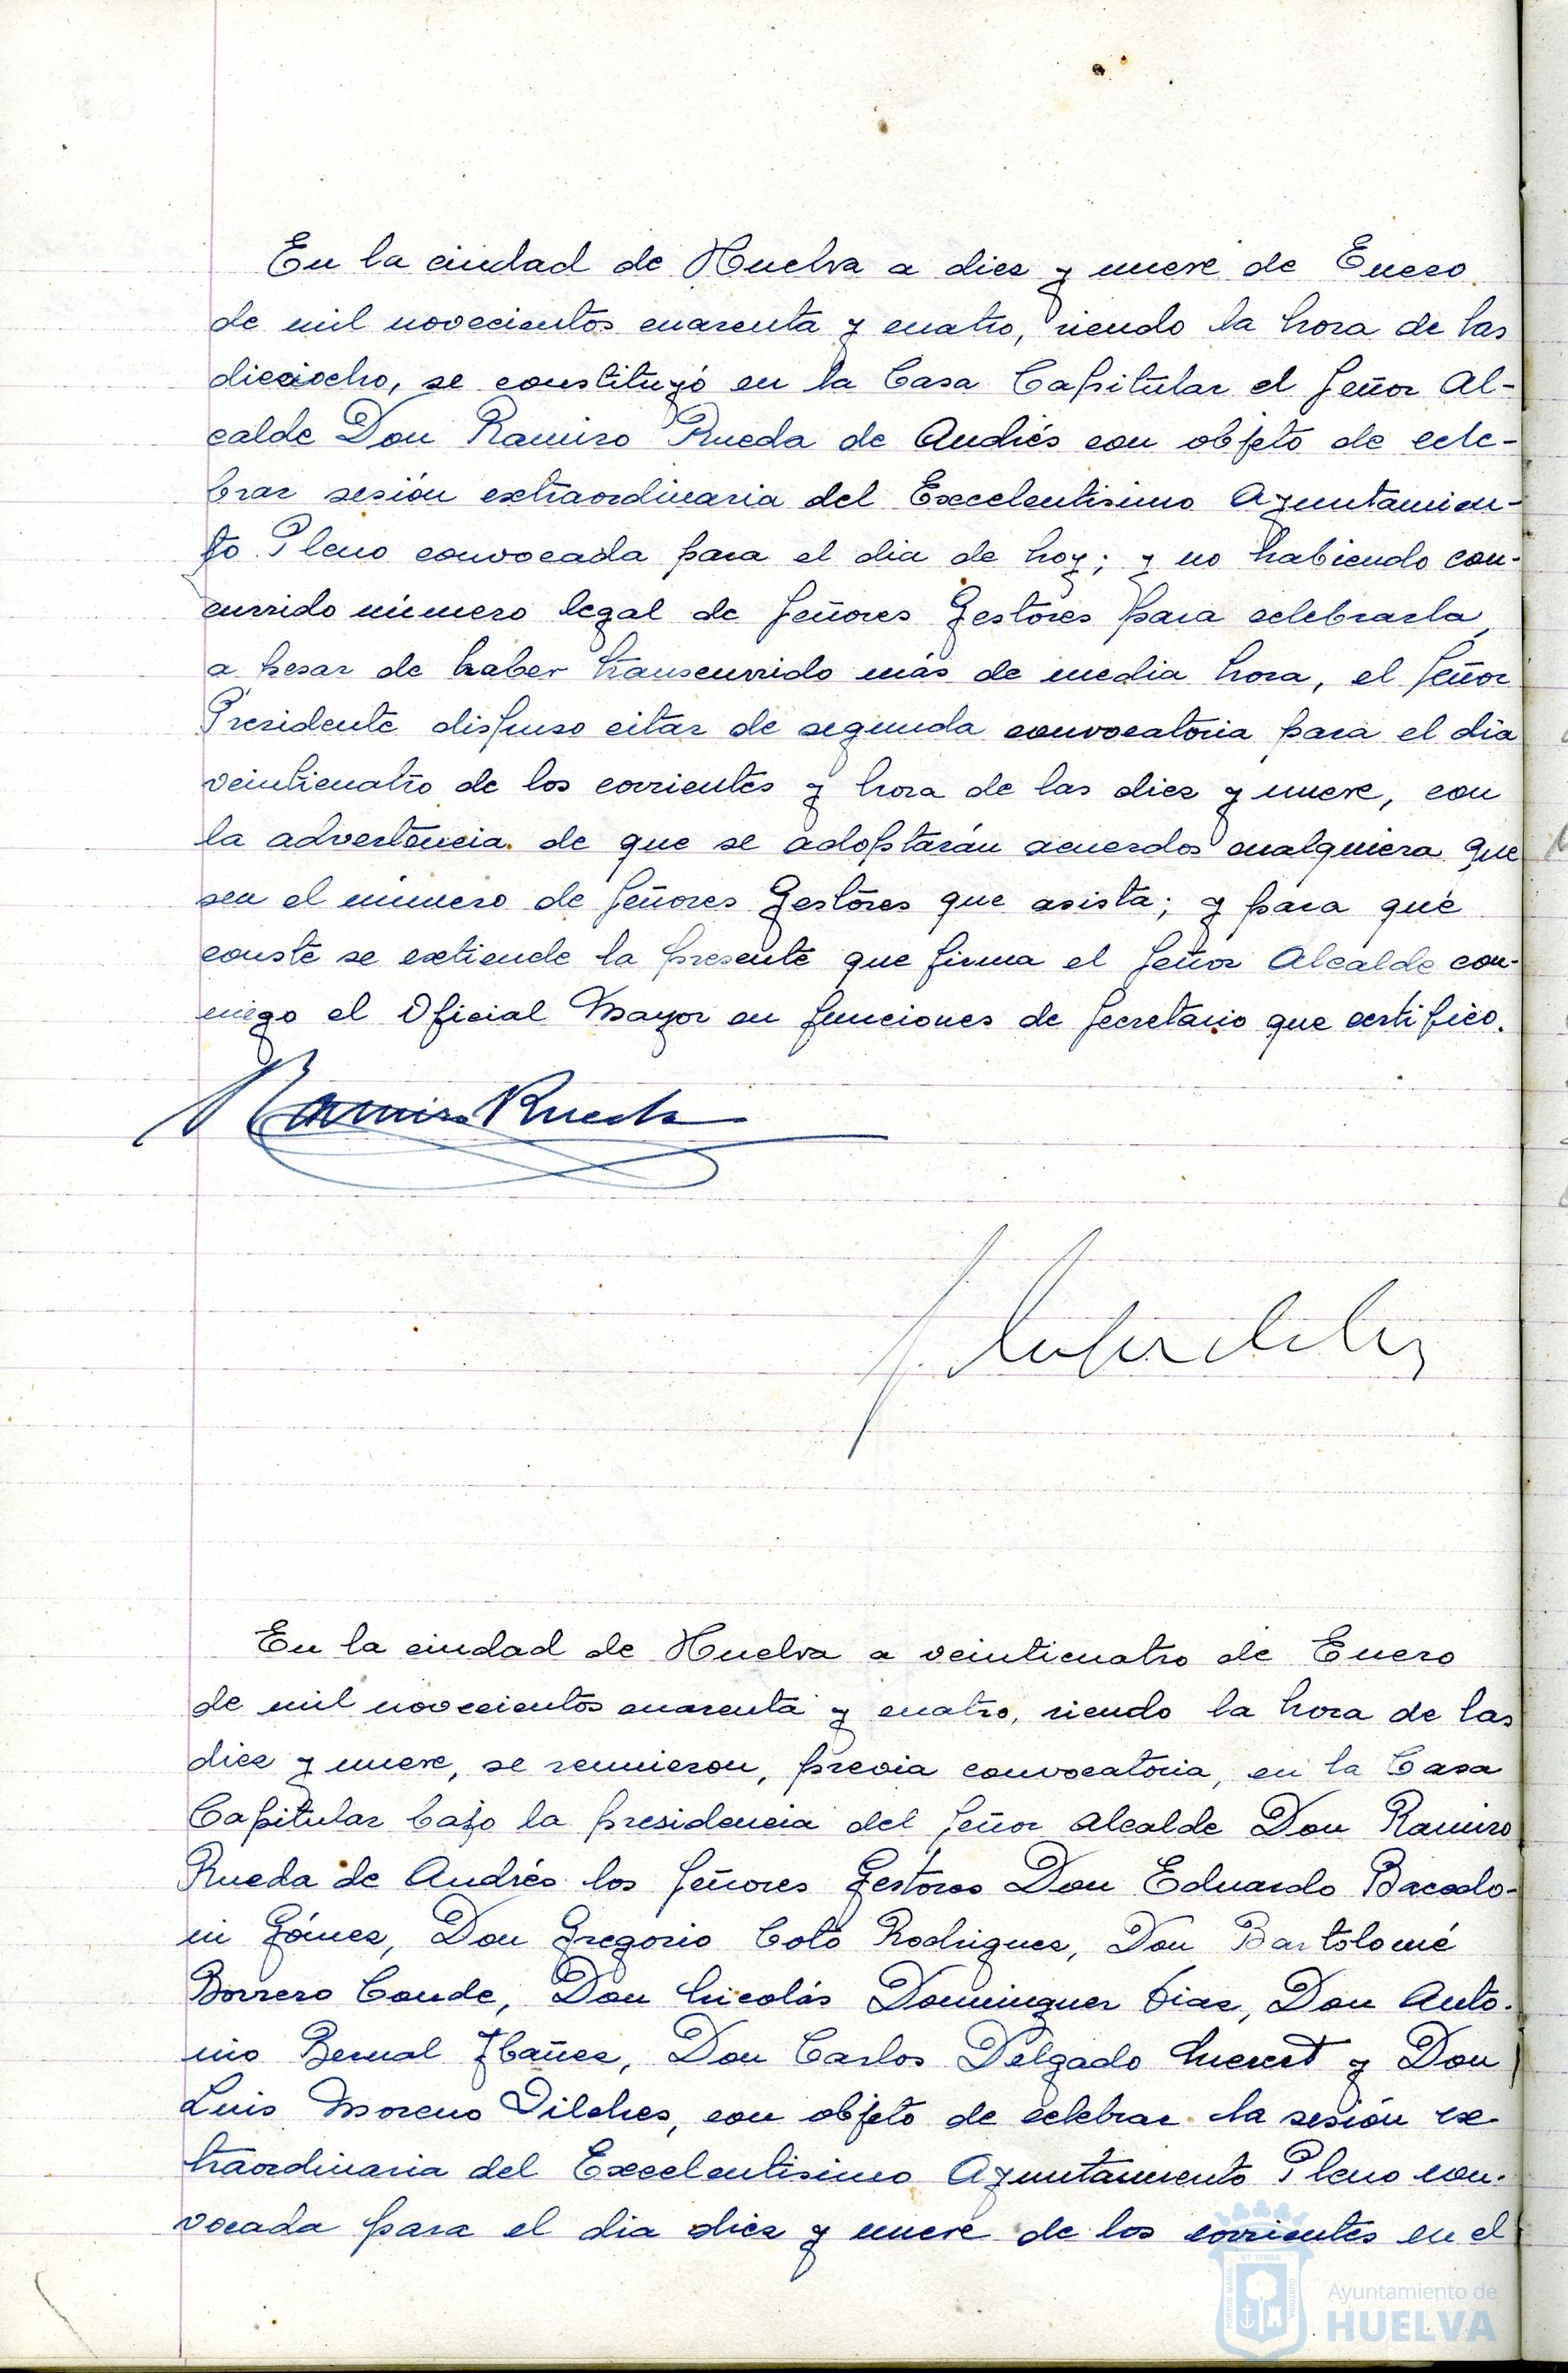 En la ciudad de Huelva a diez y nueve de Enero
de mil novecientos cuarenta y cuatro, siendo la hora de las
dieciocho, se constituyó en la Casa Capitular el Señor Al-
calde Don Ramiro Rueda de Andrés con objeto de cele-
brar sesión extraordinaria del Excelentisimo Ayuntamien-
to Pleno convocada para el dia de hoy; y no habiendo con-
currido número legal de Señores Gestores para celebrarla,
a pesar de haber transcurrido más de media hora, el Señor
Presidente dispuso citar de segunda convocatoria para el dia
veinticuatro de los corrientes y hora de las diez y nueve, con
la advertencia de que se adoptarán acuerdos cualquiera que
sea el número de Señores Gestores que asista; y para que
conste se extiende la presente que firma el Señor Alcalde con-
migo el Oficial Mayor en funciones de Secretario que certifico.
Ramiro Rueda
En la ciudad de Huelva a veinticuatro de Enero
de mil novecientos cuarenta y cuatro, siendo la hora de las
diez y nueve, se reunieron, previa convocatoria, en la Casa
Capitular bajo la presidencia del Señor Alcalde Don Ramiro
Rueda de Andrés los Señores Gestores Don Eduardo Bacedo-
ni Gómez, Don Gregorio Coto Rodriguez, Don Bartolomé
Borrero Conde, Don Nicolás Dominguez Diaz, Don Anto-
nio Bernal Ibañez, Don Carlos Delgado y Don
Luis Moreno Vilches, con objeto de celebrar la sesión ex-
traordinaria del Excelentisimo Ayuntamiento Pleno con-
vocada para el dia diez y nueve de los corrientes en el
Ayuntamiento de
HUELVA